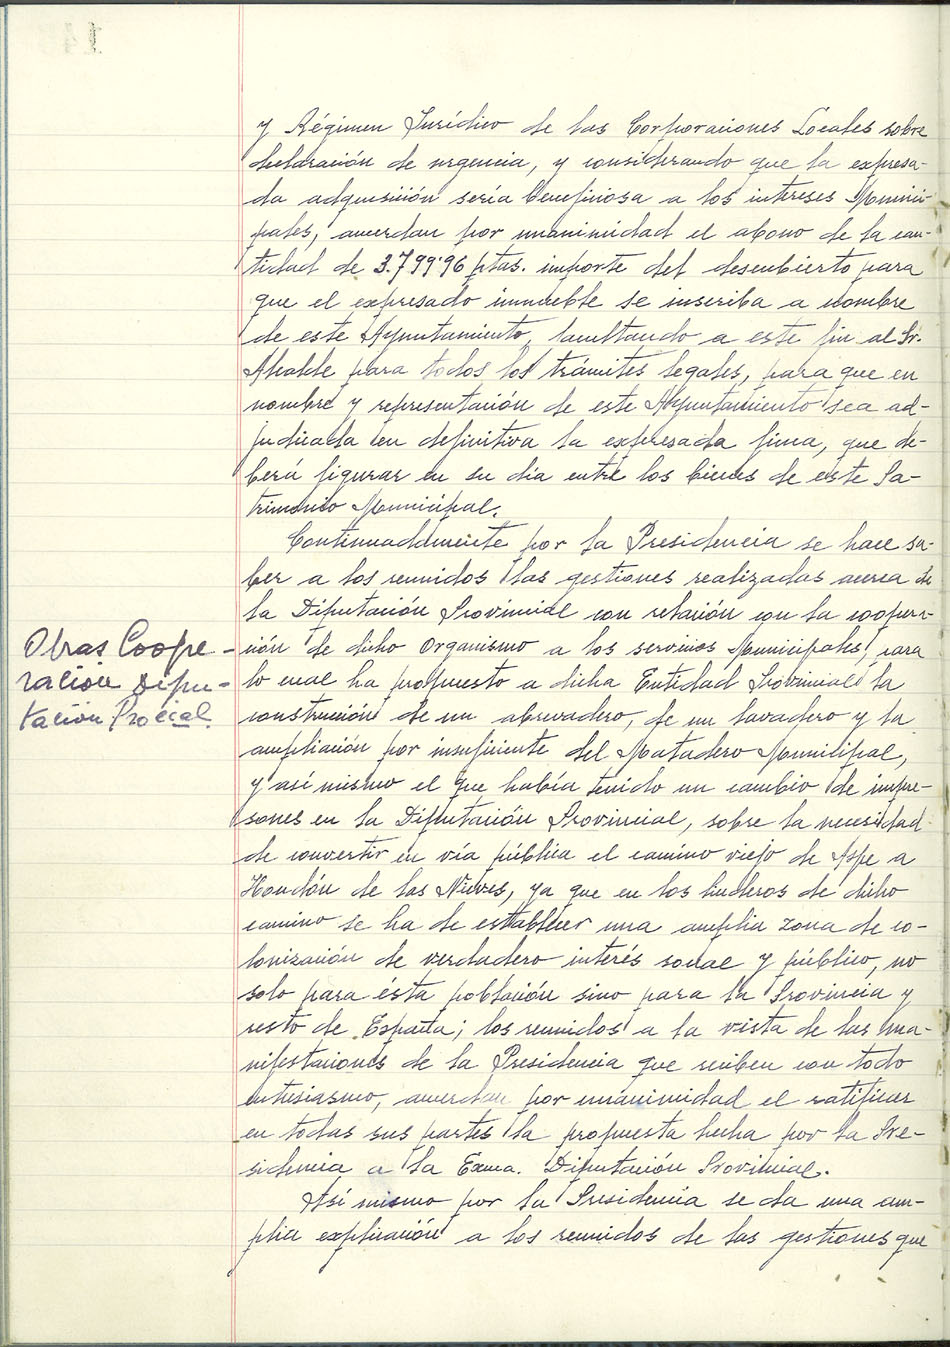 y Régimen Jurídico de las Corporaciones Locales sobre
declaración de urgencia, y considerando que la expresa-
da adquisición sería beneficiosa a los intereses Munici-
pales, acuerdan por unanimidad el abono de la can-
tidad de 3.799'96 ptas. importe del descubierto para
que el expresado inmueble se inscriba a nombre
de este Ayuntamiento, facultando a este fin al Sr.
Alcalde para todos los trámites legales, para que en
nombre y representación de este Ayuntamiento sea ad-
judicada en definitiva la expresada finca, que de-
berá figurar en su día entre los bienes de este Pa-
trimonio Municipal.
Continuadamente por la Presidencia se hace sa-
ber a los reunidos las gestiones realizadas acerca de
la Diputación Provincial con relación con la coopera-
Obras Coope-
ración Dipu-
tación Procial
ción de dicho Organismo a los servicios Municipales, para
lo cual ha propuesto a dicha Entidad Provincial la
construcción de un abrevadero, de un lavadero y la
ampliación por insuficiente del Matadero Municipal,
y así mismo el que había tenido un cambio de impre-
sones en la Diputación Provincial, sobre la necesidad
de convertir en vía pública el camino viejo de Aspe a
Hondón de las Nieves, ya que en los linderos de dicho
camino se ha de establecer una amplia zona de co-
lonización de verdadero interés social y público, no
solo para ésta población sino para la Provincia y
resto de España; los reunidos a la vista de las ma-
nifestaciones de la Presidencia que reciben con todo
entusiasmo, acuerdan por unanimidad el ratificar
en todas sus partes la propuesta hecha por la Pre-
sidencia a la Excma. Diputación Provincial.
Así mismo por la Presidencia se da una am-
plia explicación a los reunidos de las gestiones que